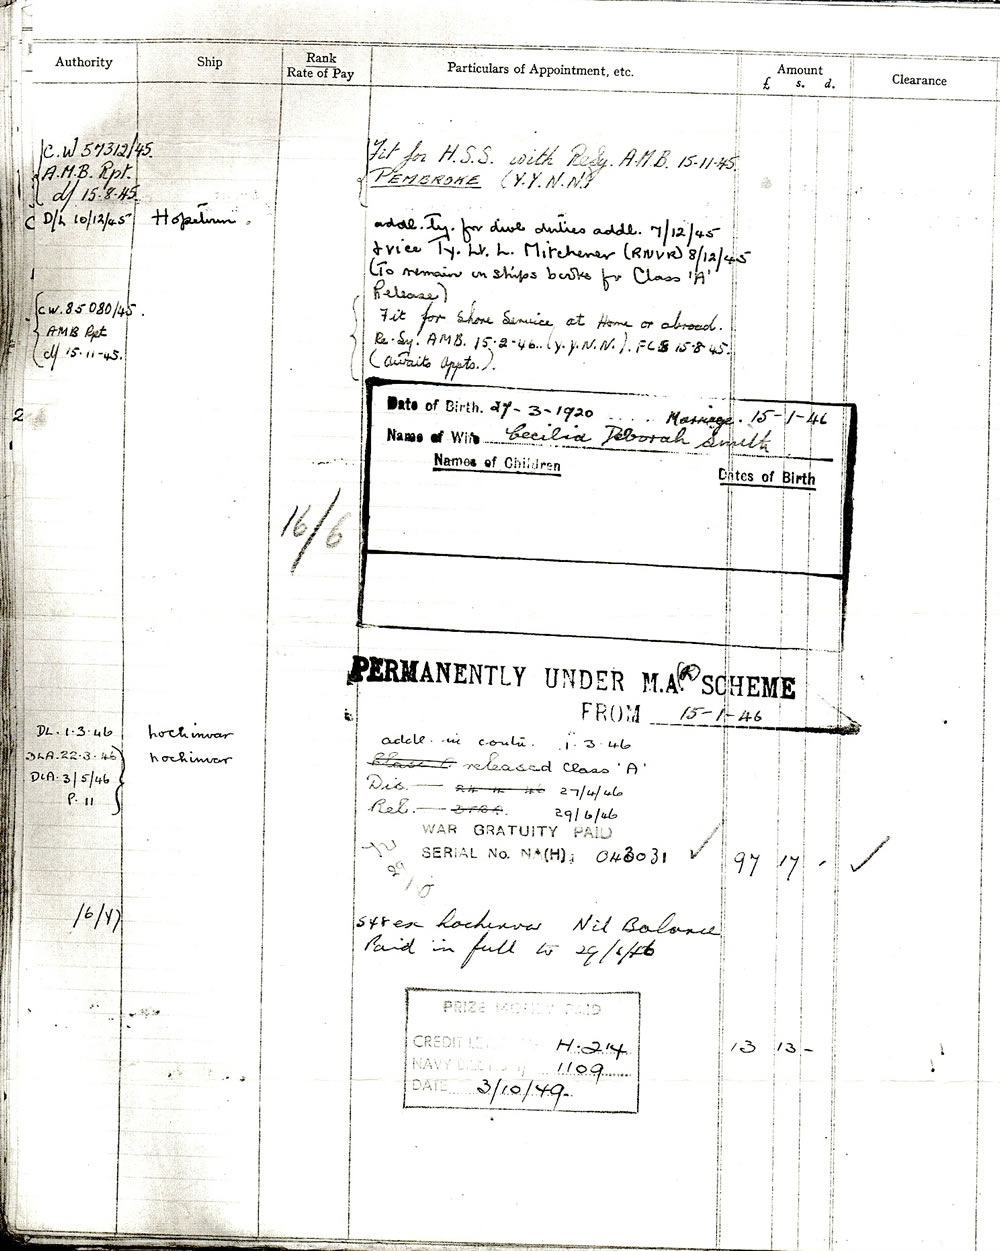 Authority Ship Rank Rate of Pay Particulars of Appointment, etc. Amount £ s. d. Clearance
C.W 57312/45. Fit for H.S.S. with Resy. A.M.B. 15-11-45.
A.M.B. Rpt. PEMBROKE (Y.Y.N.N)
d/ 15-8-45.
D/L 10/12/45 Hopetoun. addl. Ty. for dive duties addl. 7/12/45
& vice Ty. Lt. L. Mitchener (RNVR) 8/12/45
(To remain on ships books for Class 'A'
Release)
CW. 85080/45. Fit for Shore Service at Home or abroad.
AMB Rpt Re-Sy. AMB. 15-2-46. (Y.Y.N.N.). 15-8-45.
d/ 15-11-45. (Awaits Appts.).
2
Date of Birth. 27-3-1920 Marriage. 15-1-46
Name of Wife Cecilia Deborah Smith
Names of Children Dates of Birth
16/6
PERMANENTLY UNDER M.A. (R) SCHEME
FROM 15-1-46
DL. 1.3.46 Lochinvar addl. in contn. 1.3.46
DLA. 22.3.46 Lochinvar Class released Class 'A'
DLA. 3/5/46 Dis. — 27/4/46
P. 11 Rel. — 29/6/46
WAR GRATUITY PAID
SERIAL No. NA(H) 043031 97 17 -
1/6/47 ex Lochinvar Nil Balance
Paid in full to 29/6/46
PRIZE MONEY PAID
CREDIT H. 214 13 13 -
NAVY 1109
DATE 3/10/49-